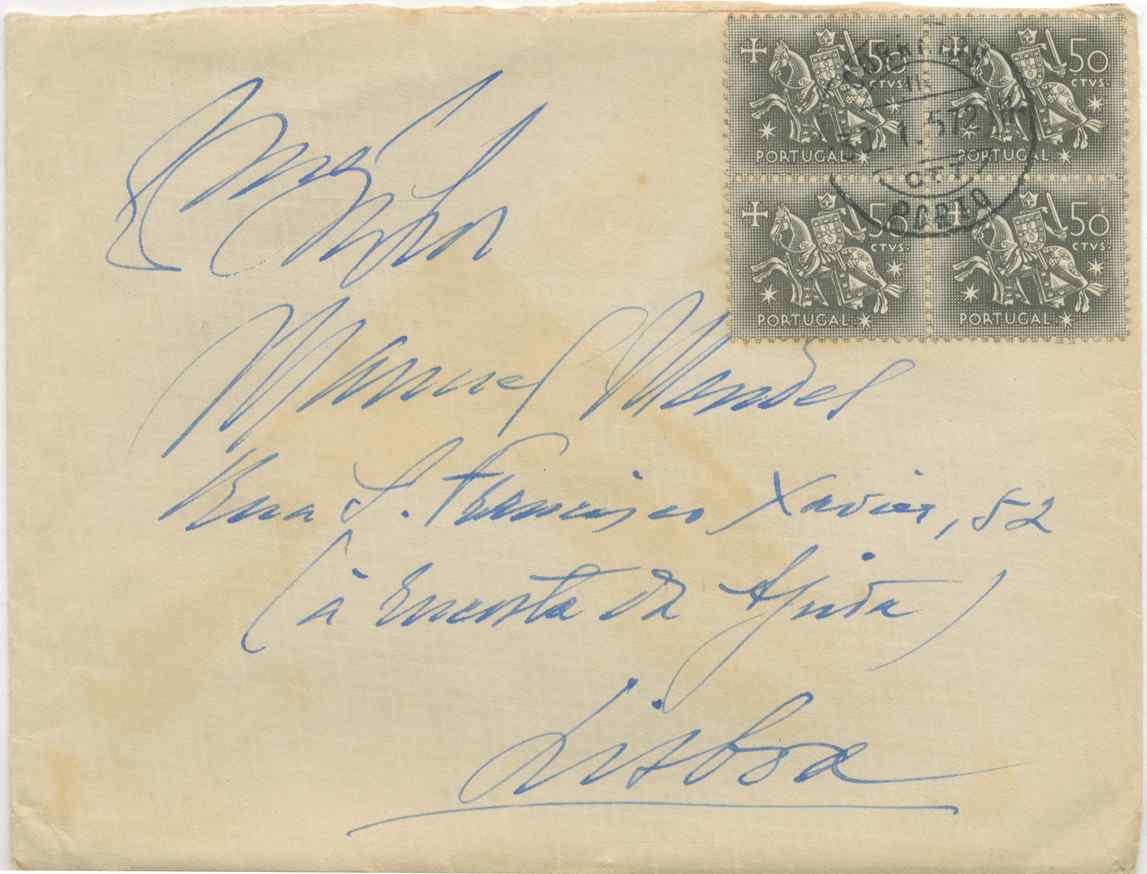 50 CTVS. PORTUGAL
50 CTVS. PORTUGAL
50 CTVS. PORTUGAL
50 CTVS. PORTUGAL
CTT
PORTO
Exmo
Senhor
Manuel Mendes
Rua S. Francisco Xavier, 52
(à Encosta da Ajuda)
Lisboa